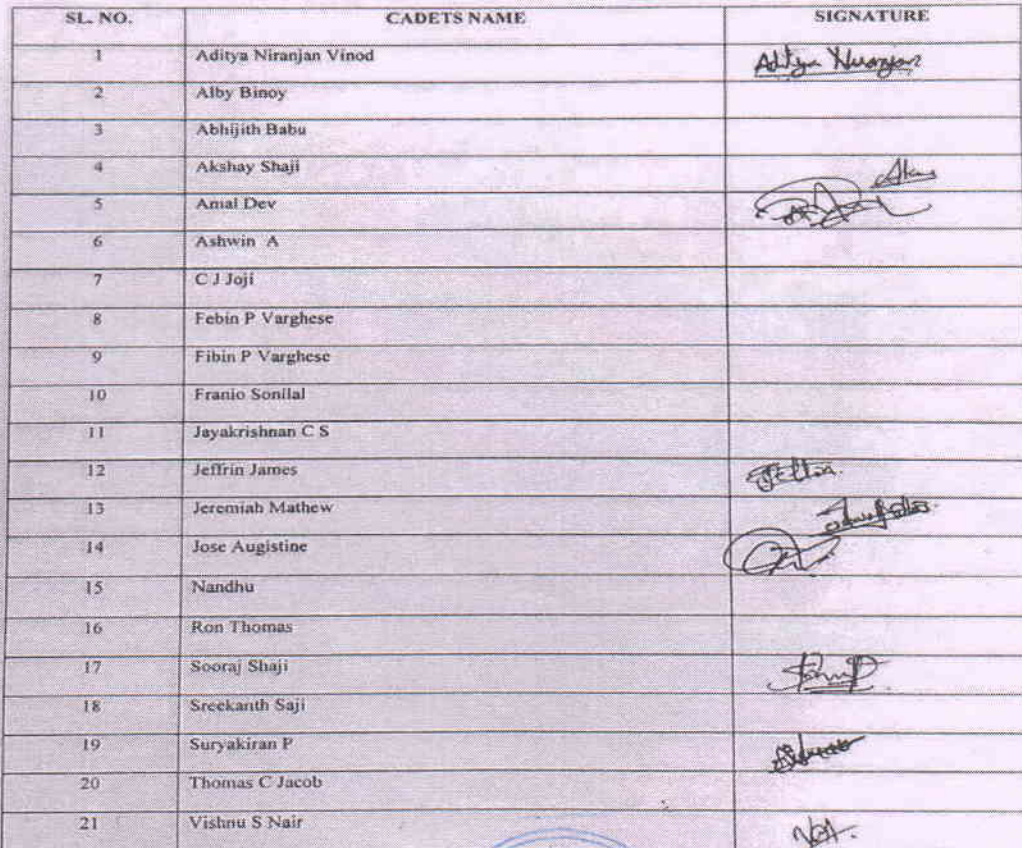 SL. NO. CADETS NAME SIGNATURE
1 Aditya Niranjan Vinod Aditya Niranjan
2 Alby Binoy
3 Abhijith Babu
4 Akshay Shaji
5 Amal Dev
6 Ashwin A
7 C J Joji
8 Febin P Varghese
9 Fibin P Varghese
10 Franio Sonilal
11 Jayakrishnan C S
12 Jeffrin James
13 Jeremiah Mathew
14 Jose Augistine
15 Nandhu
16 Ron Thomas
17 Sooraj Shaji
18 Sreekanth Saji
19 Suryakiran P
20 Thomas C Jacob
21 Vishnu S Nair